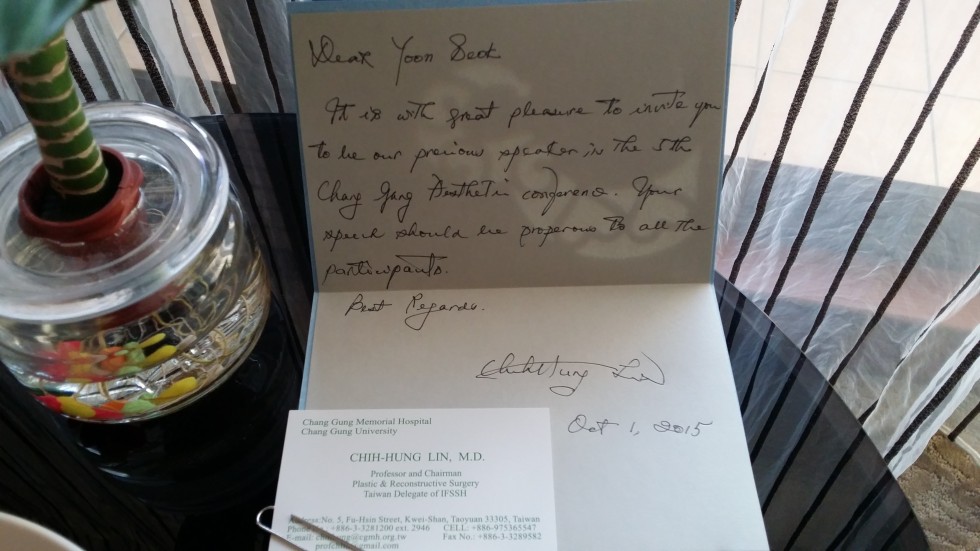 Dear Yoon Seok
It is with great pleasure to invite you
to be our precious speaker in the 5th
Chang Gung Aesthetic conference. Your
speech should be properous to all the
participants.
Best Regards.
ChihHung Lin
Oct 1, 2015
Chang Gung Memorial Hospital
Chang Gung University
CHIH-HUNG LIN, M.D.
Professor and Chairman
Plastic & Reconstructive Surgery
Taiwan Delegate of IFSSH
No. 5, Fu-Hsin Street, Kwei-Shan, Taoyuan 33305, Taiwan
+886-3-3281200 ext. 2946 CELL: +886-975365547
Fax No.: +886-3-3289582